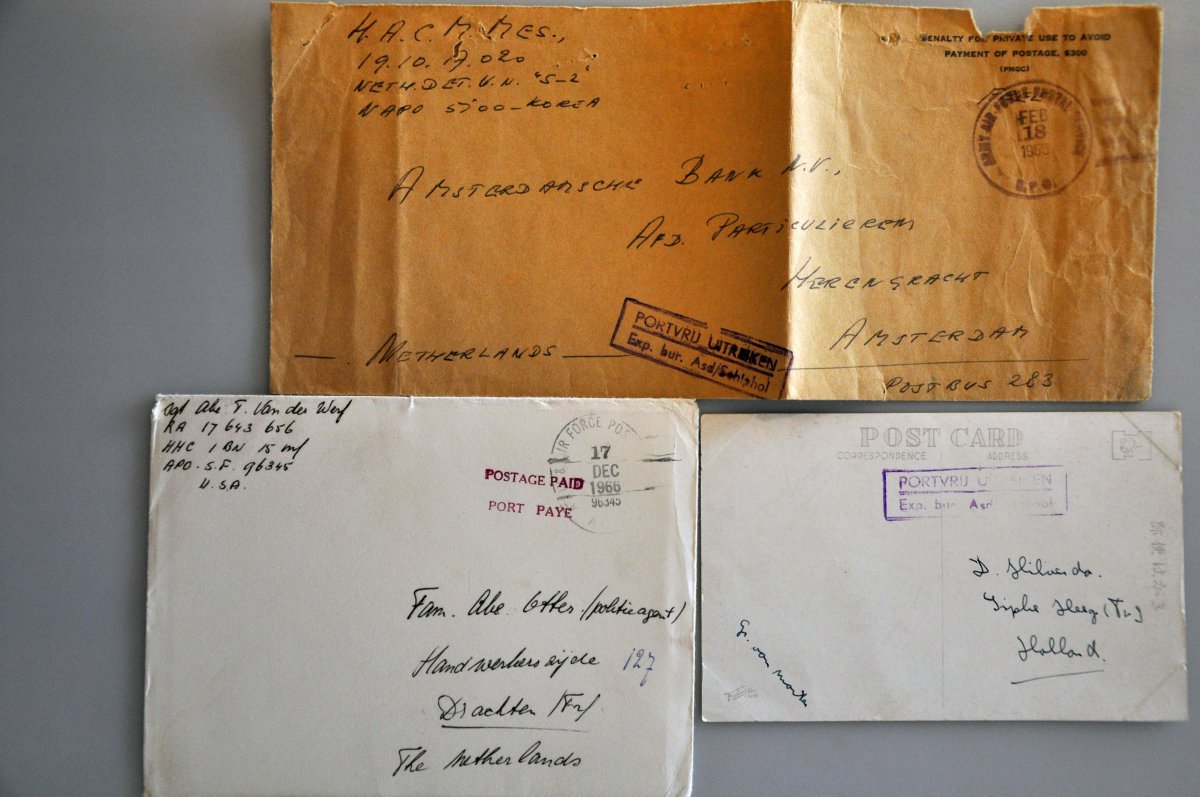 H.A.C.M. MES.,
19.10.17.020
NETH.DET.U.N. "S-2"
NAPO 5700-KOREA
PENALTY FOR PRIVATE USE TO AVOID
PAYMENT OF POSTAGE, $300
(PMGC)
ARMY AIR FORCE POSTAL SERVICE
FEB
18
A.P.O.
AMSTERDAMSCHE BANK N.V.,
AFD. PARTICULIEREN
HERENGRACHT
AMSTERDAM
POSTBUS 283
NETHERLANDS
PORTVRIJ UITREIKEN
Exp. bur. Asd/Schiphol
Sgt Abe. T. Van der Werf
RA 17 643 656
HHC 1 BN 15 inf
APO. S.F. 96345
U.S.A.
POSTAGE PAID
PORT PAYE
AIR FORCE POS
17
DEC
1966
96345
Fam. Abe Otter /politieagent/
Handwerkerszijde 127
Drachten /Fr/
The Netherlands
POST CARD
CORRESPONDENCE ADDRESS
PORTVRIJ
Exp. bur. Asd
D. Hilverda.
Holland.